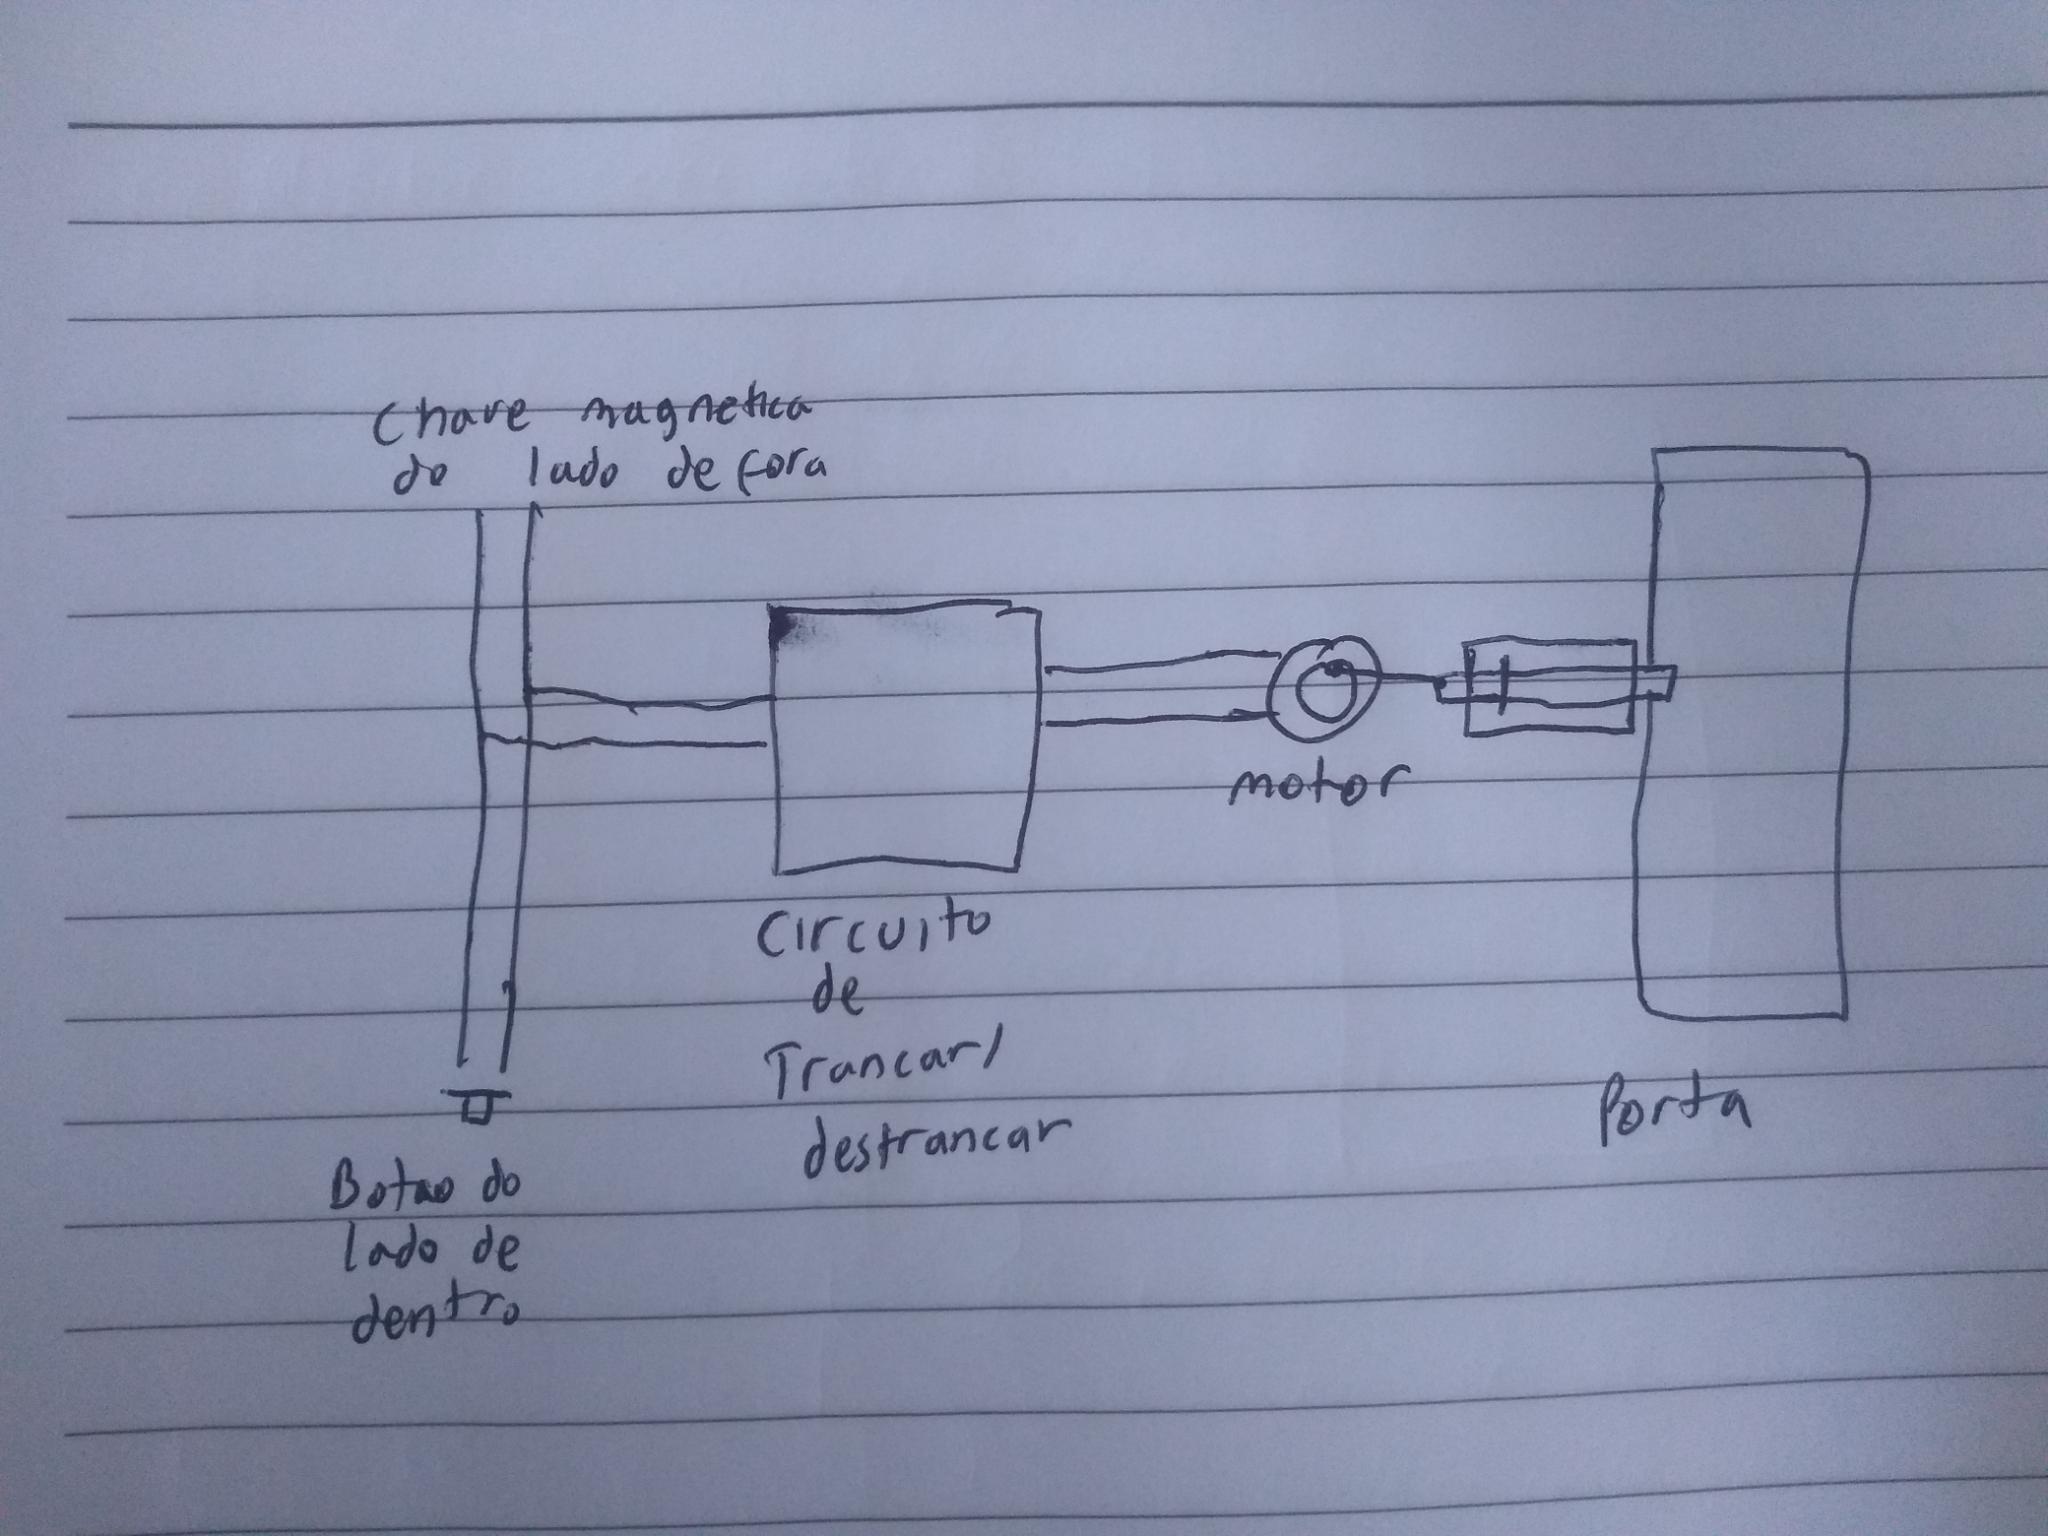 Chave magnetica
do lado de fora
motor
Circuito
de
Trancar/
destrancar
Porta
Botao do
lado de
dentro